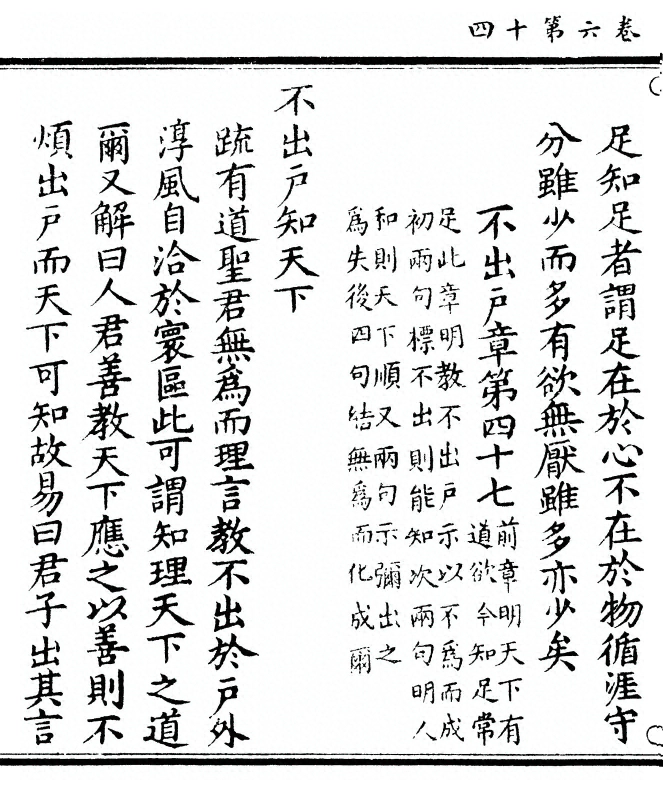 卷六第十四
足知足者謂足在於心不在於物循涯守
分雖少而多有欲無厭雖多亦少矣
不出戶章第四十七
前章明天下有
道欲今知足常
足此章明教不出戶示以不爲而成
初兩句標不出則能知次兩句明人
和則天下順又兩句示彌出之
爲失後四句結無爲而化成爾
不出戶知天下
疏有道聖君無爲而理言教不出於戶外
淳風自洽於寰區此可謂知理天下之道
爾又解曰人君善教天下應之以善則不
煩出戶而天下可知故易曰君子出其言